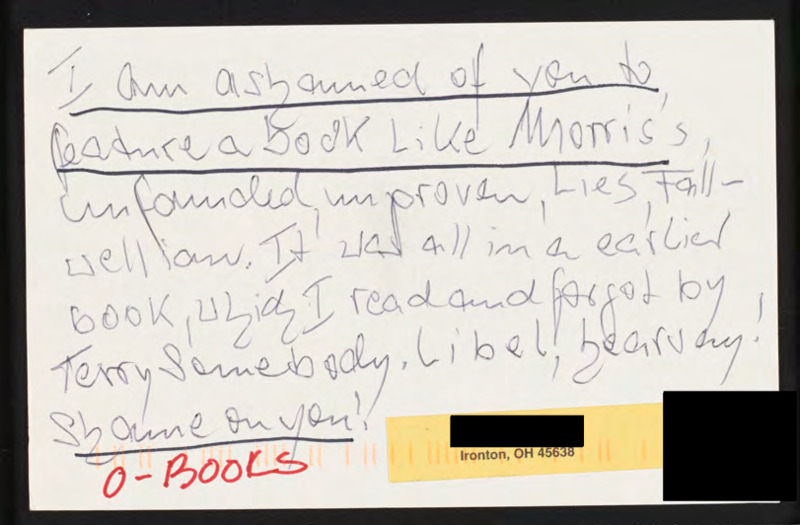 I am ashamed of you to
feature a book like Morris's,
unfounded, unproven, Lies, Fall-
wellian. It was all in a earlier
book, which I read and forgot by
Terry Somebody. Libel, hearsay!
Shame on you!
O-BOOKS
Ironton, OH 45638